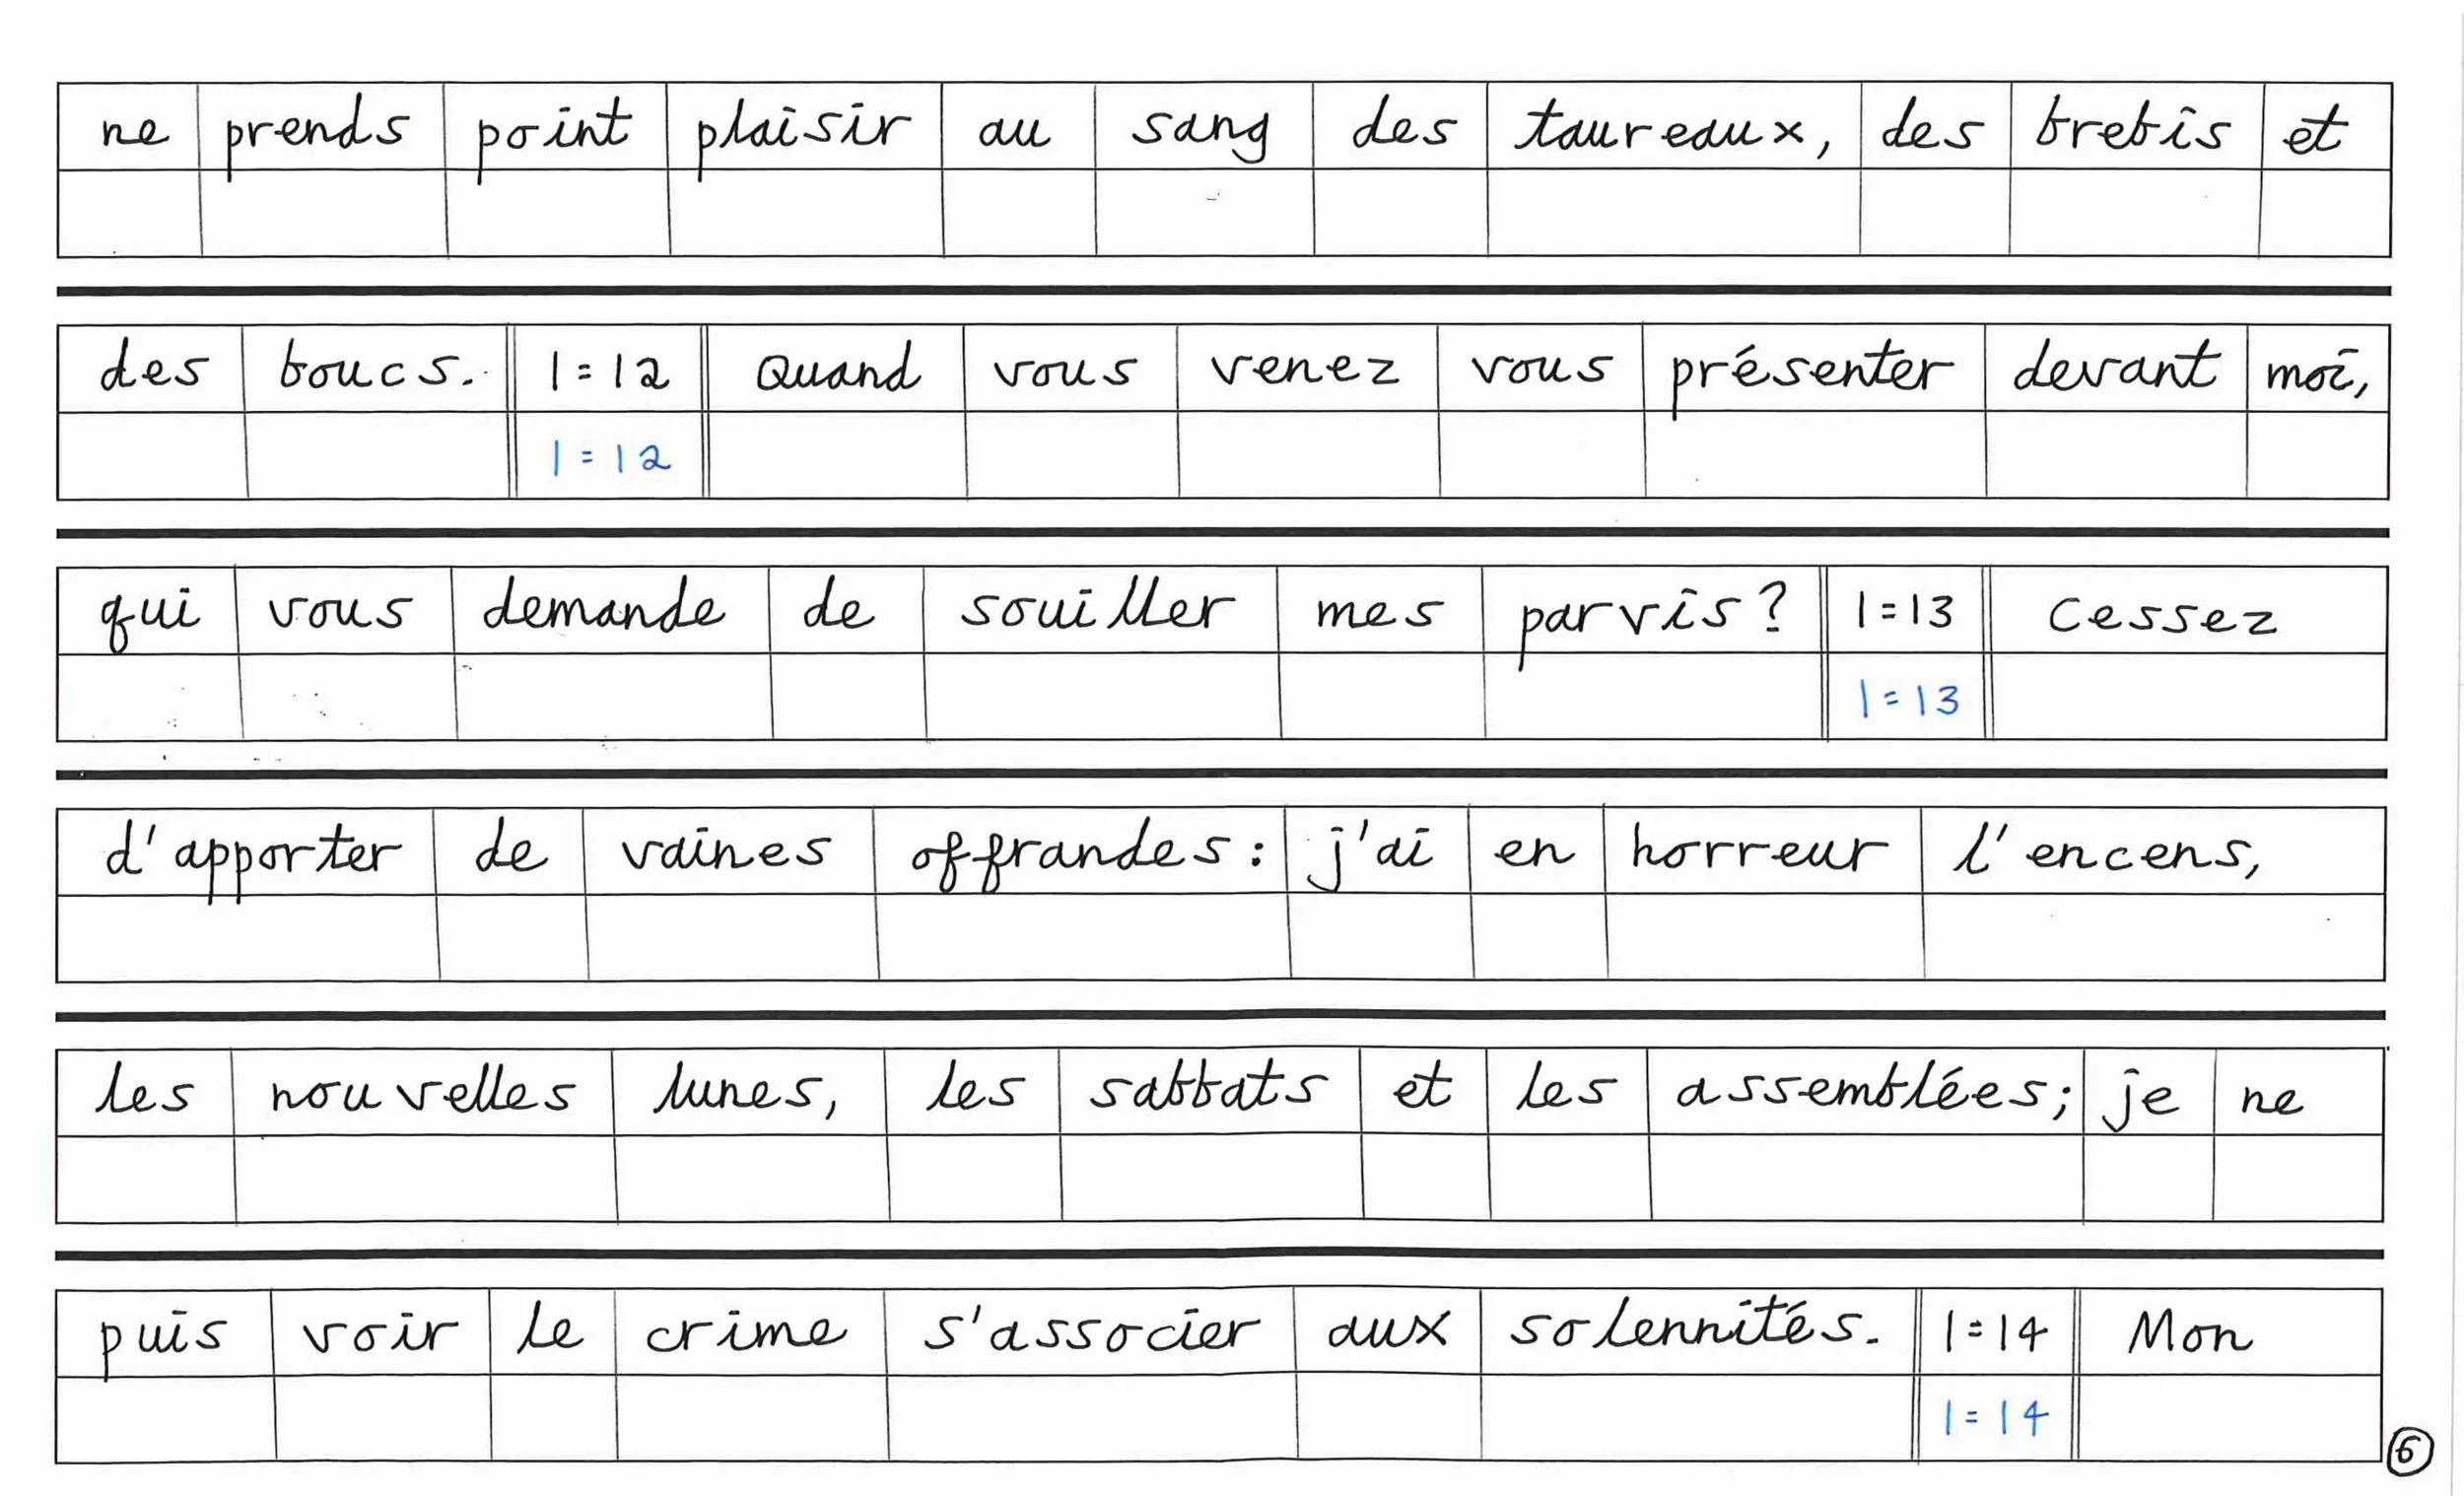 ne prends point plaisir au sang des taureaux, des brebis et
des boucs. 1=12 Quand vous venez vous présenter devant moi,
1=12
qui vous demande de souiller mes parvis? 1=13 Cessez
1=13
d'apporter de vaines offrandes: j'ai en horreur l'encens,
les nouvelles lunes, les sabbats et les assemblées; je ne
puis voir le crime s'associer aux solennités. 1=14 Mon
1=14
6